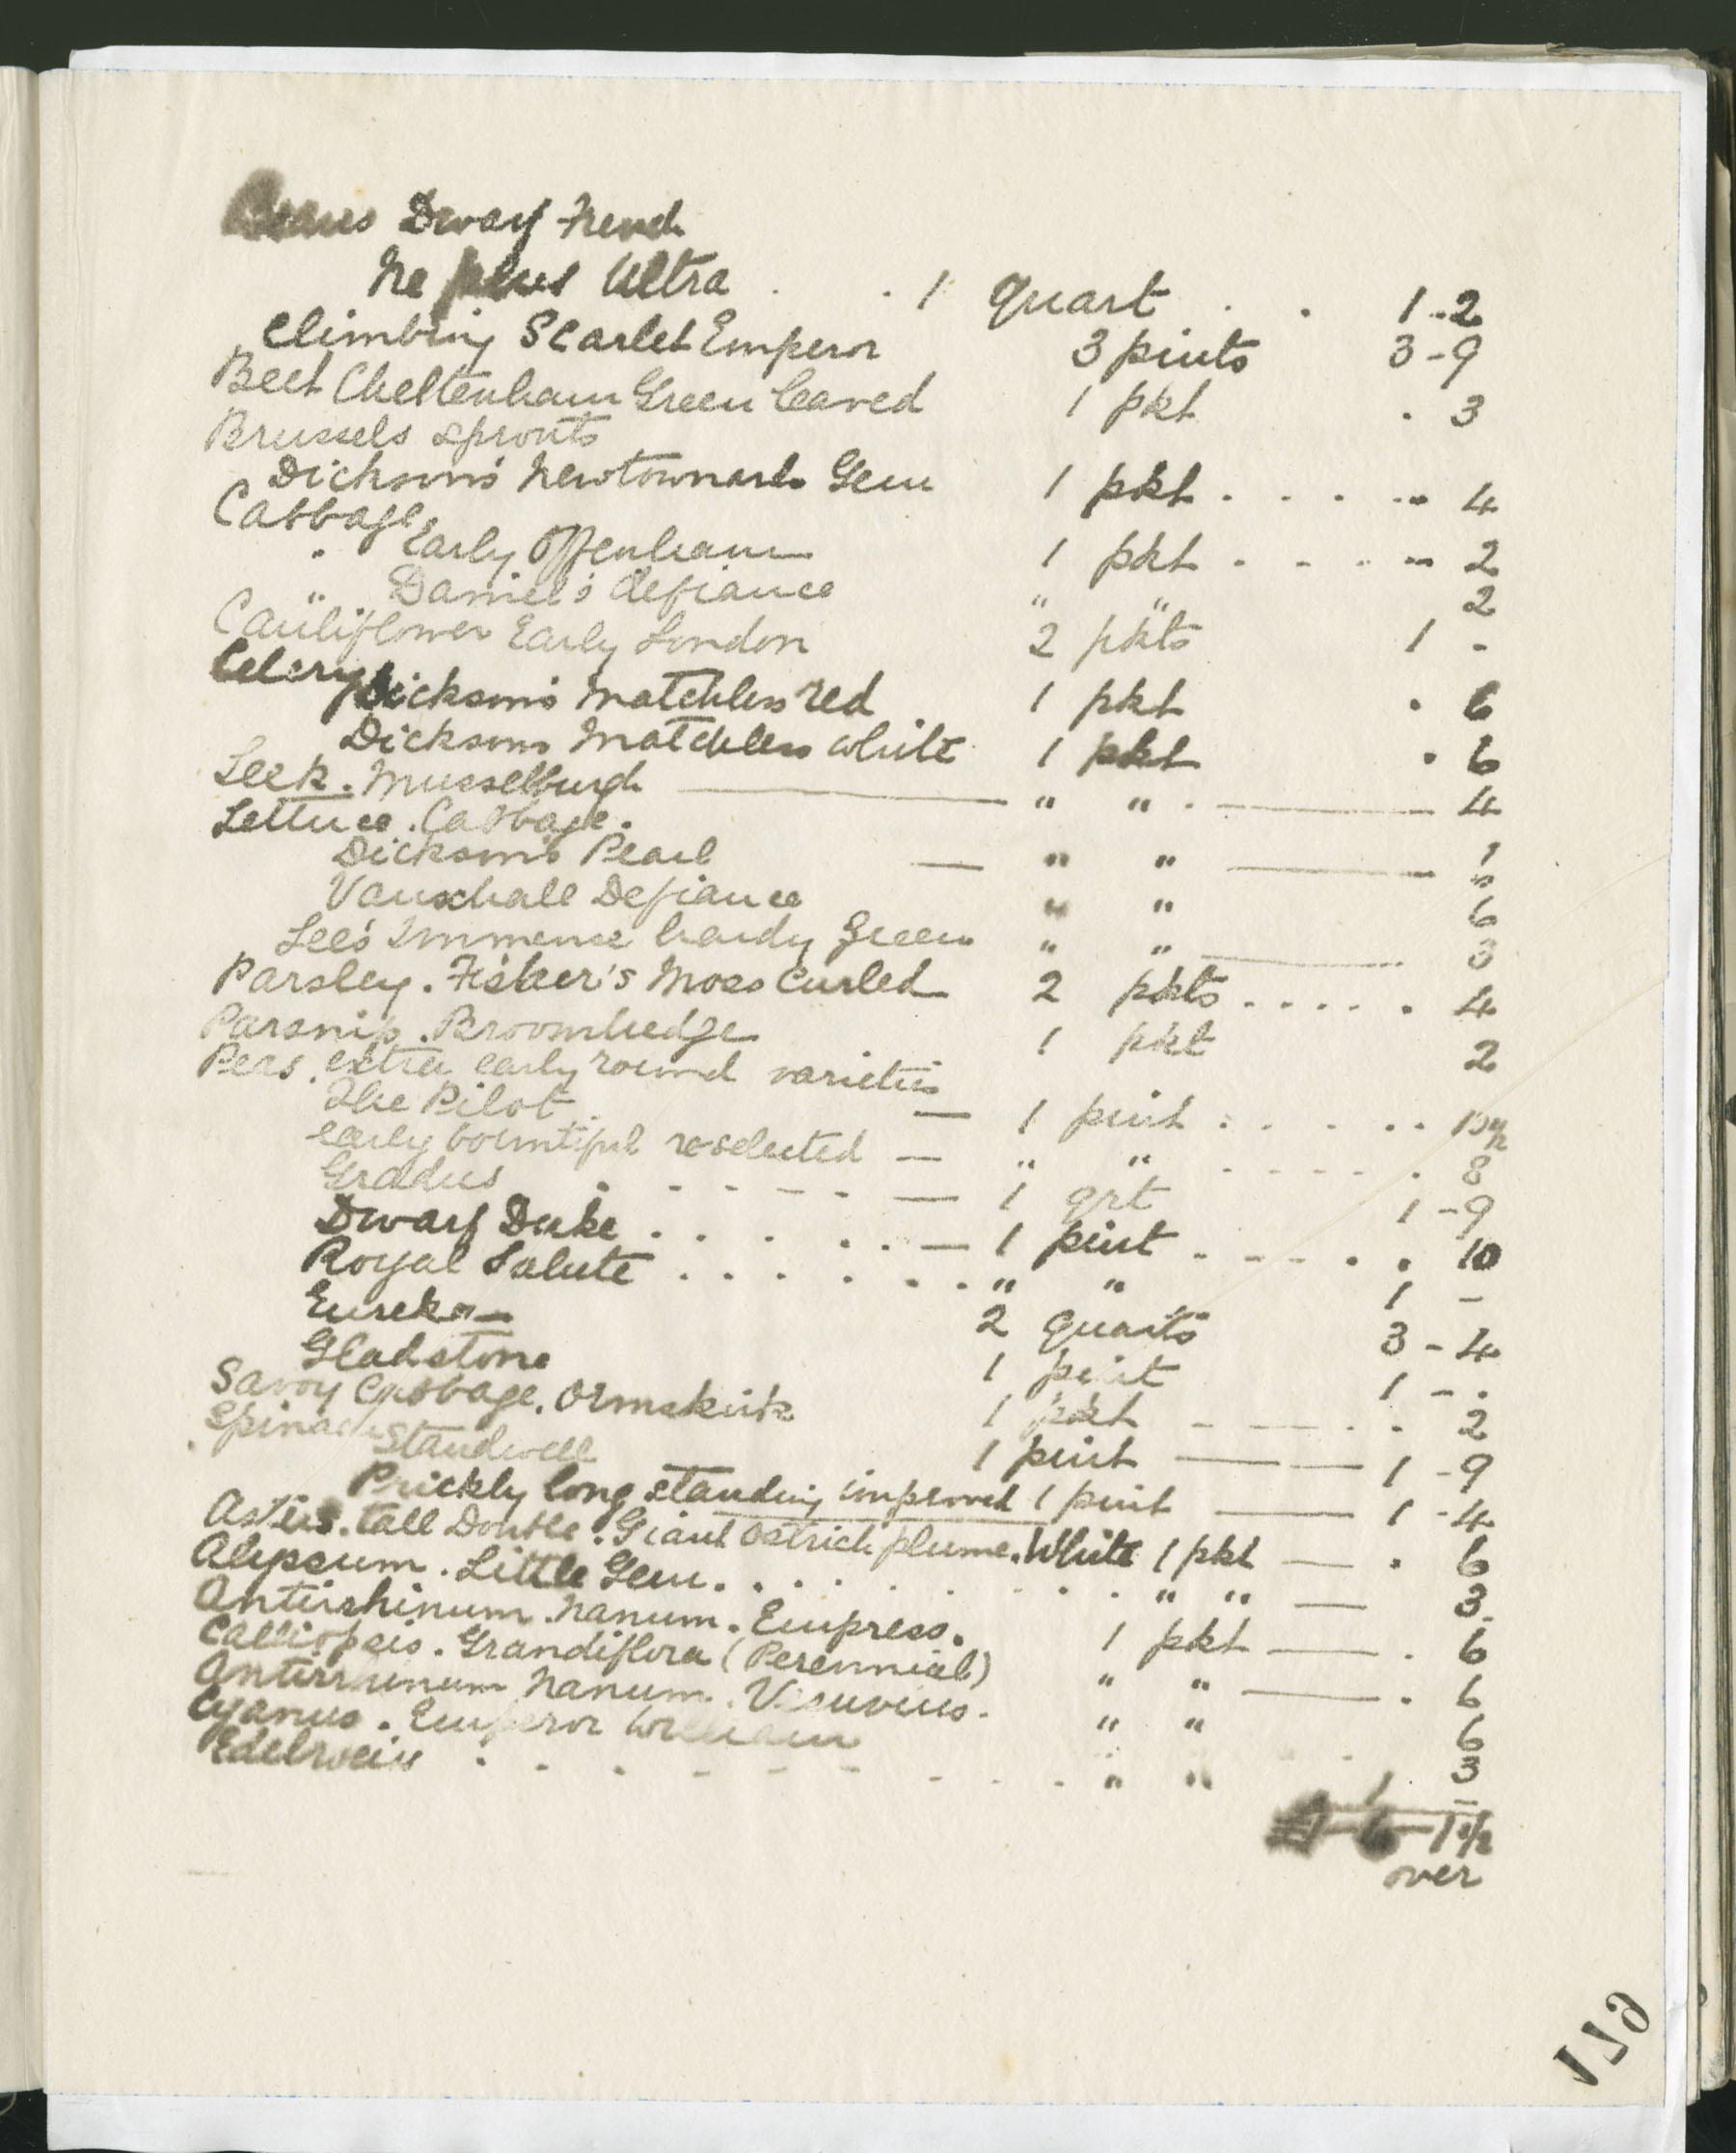 Beans Dwarf French
Ne plus Ultra . . 1 quart . . 1-2
Climbing Scarlet Emperor 3 pints 3-9
Beet Cheltenham Green leaved 1 pkt . 3
Brussels sprouts
Dickson's Newtownards Gem 1 pkt . . . . . 4
Cabbage,
. Early Offenham 1 pkt . . . . . 2
" Daniel's defiance " " 2
Cauliflower Early London 2 pkts 1 -
Celery Dickson's matchless red 1 pkt . 6
Dicksons Matchless white 1 pkt . 6
Leek. Musselburgh — " " . — 4
Lettuce. Cabbage.
Dickson's Pearl — " " —
Vauxhall Defiance " " 6
Lee's Immense hardy green " " — 3
Parsley. Fisher's Moss Curled 2 pkts . . . . . 4
Parsnip. Broomhedge 1 pkt 2
Peas. extra early round varieties
The Pilot — 1 pint . . . . . 10½
early bountiful reselected — " " . . . . . 8
Gradus . - - - - — 1 qrt 1-9
Dwarf Duke . . . . . — 1 pint . - - . . 10
Royal Salute . . . . . . " " 1 -
Eureka — 2 quarts 3-4
Gladstone 1 pint 1 - .
Savoy Cabbage. Ormskirk 1 pkt - - - . 2
Spinach Standwell 1 pint — 1-9
Prickly long standing improved 1 pint — 1-4
Asters. tall Double. Giant Ostrich plume. White 1 pkt — . 6
Alyssum. Little Gem. . . . . . . . . " " — 3
Antirrhinum. Nanum. Empress. 1 pkt — . 6
Calliopsis. Grandiflora (Perennial) " " — . 6
Antirrhinum Nanum. Vesuvius. " " 6
Cyanus. Emperor William 3
Edelweiss . . . - - - - . . " "
over
179